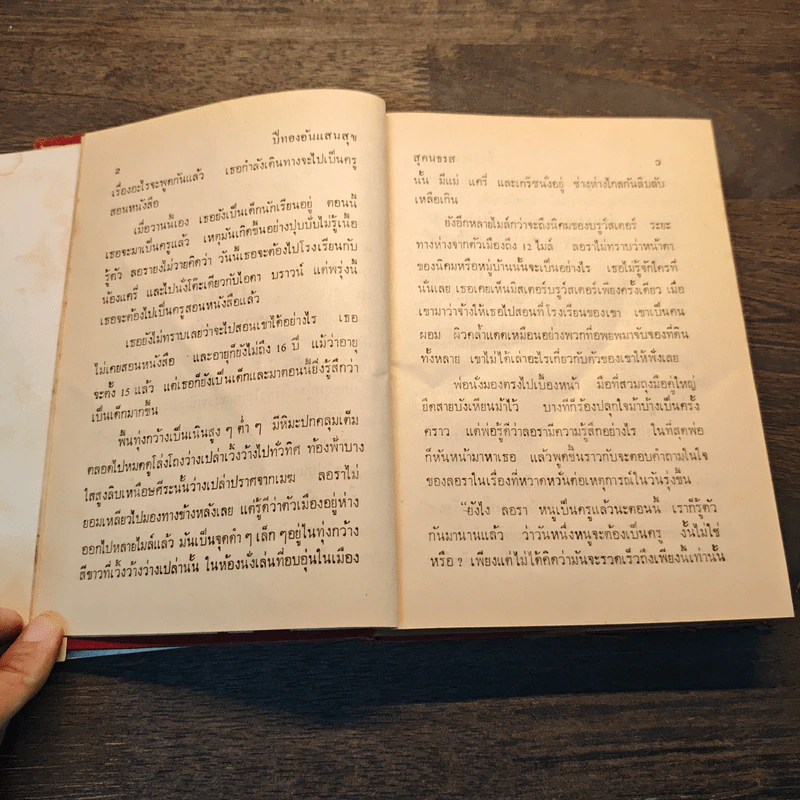 2
ปีทองอันแสนสุข
เรื่องอะไรจะพูดกันแล้ว เธอกำลังเดินทางจะไปเป็นครู
สอนหนังสือ
เมื่อวานนี้เอง เธอยังเป็นเด็กนักเรียนอยู่ ตอนนี้
เธอจะมาเป็นครูแล้ว เหตุมันเกิดขึ้นอย่างปุบปับไม่รู้เนื้อ
รู้ตัว ลอรายังไม่วายคิดว่า วันนี้เธอจะต้องไปโรงเรียนกับ
น้องแครี่ และไปนั่งโต๊ะเดียวกับไอดา บราวน์ แต่พรุ่งนี้
เธอจะต้องไปเป็นครูสอนหนังสือแล้ว
เธอยังไม่ทราบเลยว่าจะไปสอนเขาได้อย่างไร เธอ
ไม่เคยสอนหนังสือ และอายุก็ยังไม่ถึง 16 ปี แม้ว่าอายุ
จะตั้ง 15 แล้ว แต่เธอก็ยังเป็นเด็กและมาตอนนี้ยิ่งรู้สึกว่า
เป็นเด็กมากขึ้น
พื้นทุ่งกว้างเป็นเนินสูง ๆ ต่ำ ๆ มีหิมะปกคลุมเต็ม
ตลอดไปหมดดูโล่งโถงว่างเปล่าเวิ้งว้างไปทั่วทิศ ท้องฟ้าบาง
ใสสูงลิบเหนือศีรษะนั้นว่างเปล่าปราศจากเมฆ ลอราไม่
ยอมเหลียวไปมองทางข้างหลังเลย แต่รู้ดีว่าตัวเมืองอยู่ห่าง
ออกไปหลายไมล์แล้ว มันเป็นจุดดำ ๆ เล็ก ๆ อยู่ในทุ่งกว้าง
สีขาวที่เวิ้งว้างว่างเปล่านั้น ในห้องนั่งเล่นที่อบอุ่นในเมือง
สุคนธรส
๓
นั้น มีแม่ แครี่ และเกรซนั่งอยู่ ช่างห่างไกลกันลิบลับ
เหลือเกิน
ยังอีกหลายไมล์กว่าจะถึงนิคมของบรูว์สเตอร์ ระยะ
ทางห่างจากตัวเมืองถึง 12 ไมล์ ลอราไม่ทราบว่าหน้าตา
ของนิคมหรือหมู่บ้านนั้นจะเป็นอย่างไร เธอไม่รู้จักใครที่
นั่นเลย เธอเคยเห็นมิสเตอร์บรูว์สเตอร์เพียงครั้งเดียว เมื่อ
เขามาว่าจ้างให้เธอไปสอนที่โรงเรียนของเขา เขาเป็นคน
ผอม ผิวคล้ำแดดเหมือนอย่างพวกที่อพยพมาจับจองที่ดิน
ทั้งหลาย เขาไม่ได้เล่าอะไรเกี่ยวกับตัวของเขาให้ฟังเลย
พ่อนั่งมองตรงไปเบื้องหน้า มือที่สวมถุงมือคู่ใหญ่
ยึดสายบังเหียนม้าไว้ บางทีก็ร้องปลุกใจม้าบ้างเป็นครั้ง
คราว แต่พ่อรู้ดีว่าลอรามีความรู้สึกอย่างไร ในที่สุดพ่อ
ก็หันหน้ามาหาเธอ แล้วพูดขึ้นราวกับจะตอบคำถามในใจ
ของลอราในเรื่องที่หวาดหวั่นต่อเหตุการณ์ในวันรุ่งขึ้น
"ยังไง ลอรา หนูเป็นครูแล้วนะตอนนี้ เราก็รู้ตัว
กันมานานแล้ว ว่าวันหนึ่งหนูจะต้องเป็นครู งั้นไม่ใช่
หรือ ? เพียงแต่ไม่ได้คิดว่ามันจะรวดเร็วถึงเพียงนี้เท่านั้น